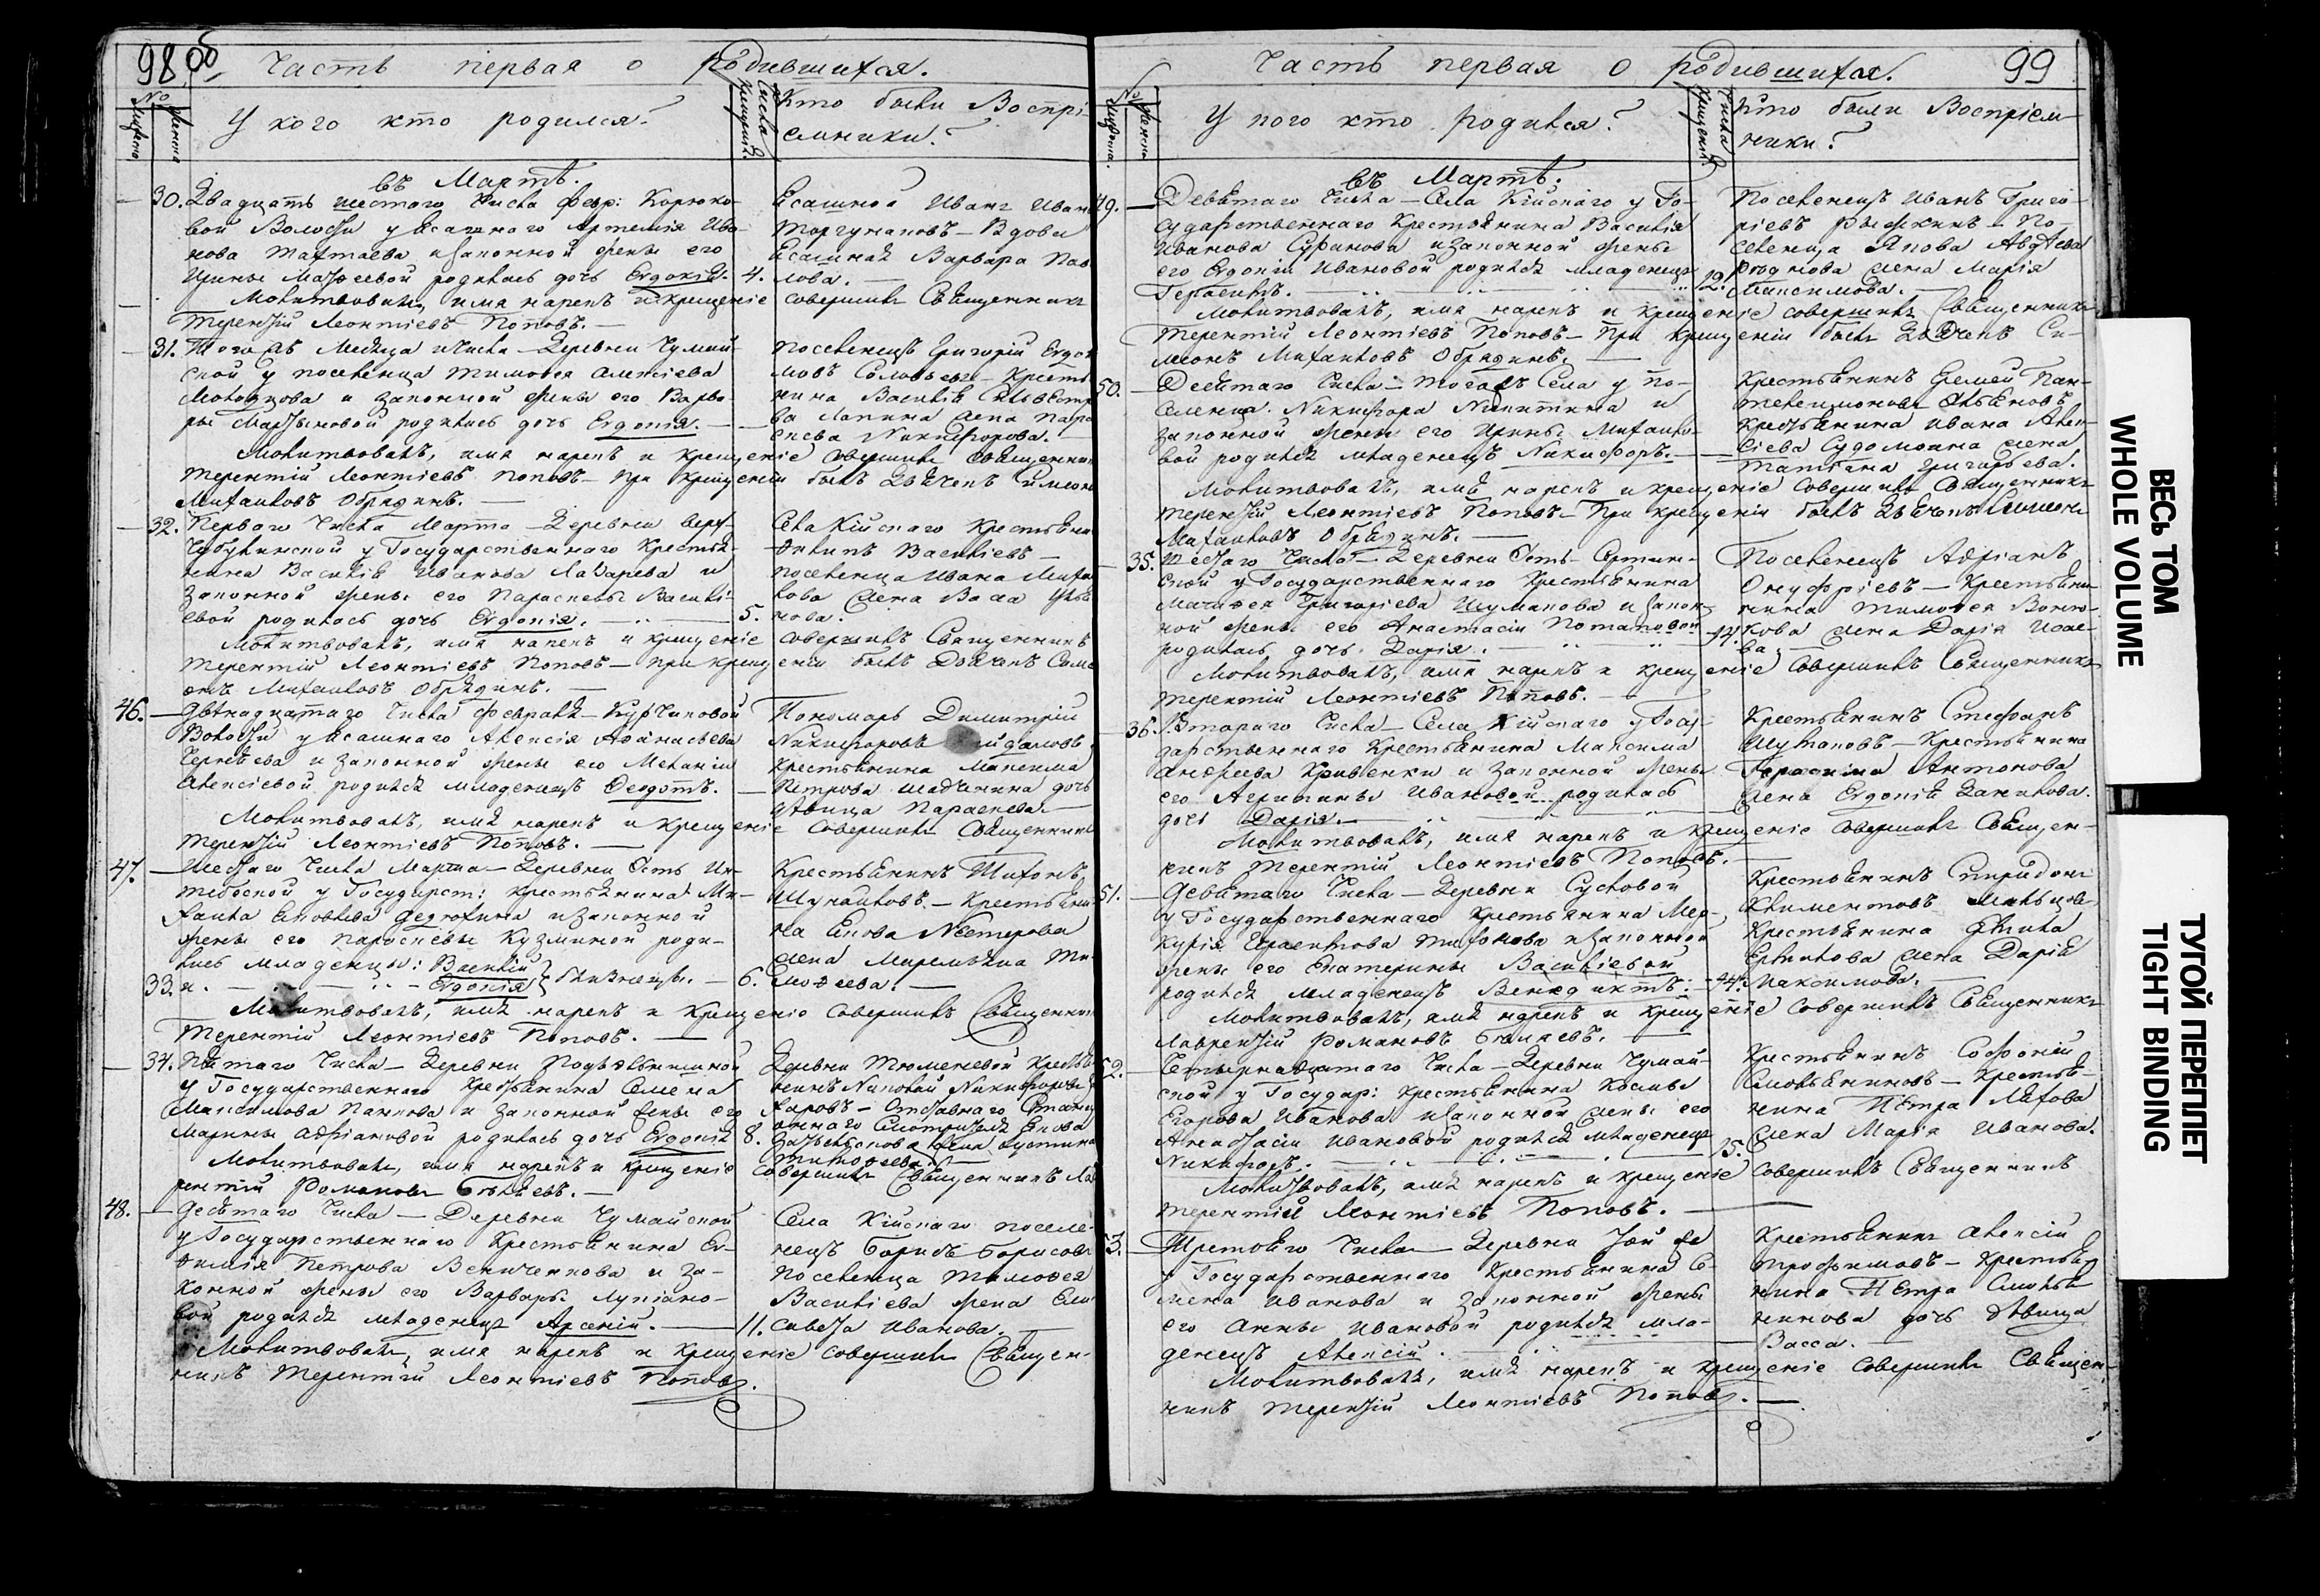 98 об
Часть первая о родившихся.
№
Мужеска
Женска
У кого кто родился?
Числа Крещения.
Кто были Воспрі-
емники?
въ Мартѣ.
30. Двадцать шестаго Числа Февр: Корюко-
вой Волости у Ясашнаго Артемія Ива-
нова Тахтаева и законной жены его
Ирины Матѳеевой родилась дочь Евдокія. 4.
Ясашной Иванъ Иван
Торгунаковъ — Вдова
Ясашная Варвара Пав
лова. —
Молитвовалъ, имя нарекъ и крещеніе совершилъ Священникъ
Терентій Леонтіевъ Поповъ. —
31. Того жъ Месяца Числа — Деревни Чумай-
ской у поселенца Тимофея Алексіева
и законной жены его Варва-
ры Мартыновой родилась дочь Евдокія. —
Поселенецъ Григорій Евдок
мовъ Соловьевъ — Кресть
нина Василія Сильвестр
ва Лапина жена Пара
скева Никифорова. —
Молитвовалъ, имя нарекъ и крещеніе совершилъ Священни
Терентій Леонтіевъ Поповъ — При крещеніи былъ Дьячекъ Симеон
Михаиловъ Обрядинъ. —
32. Перваго Числа Марта — Деревни Верх-
Чубулинской у Государственнаго Крестья-
нина Василія Иванова Лазарева и
законной жены его Параскевы Василі-
евой родилась дочь Евдокія. 5.
Села Кійскаго Крестьяни
Филипъ Василіевъ —
поселенца Ивана Миха
лова жена Васа
нова.
Молитвовалъ, имя нарекъ и крещеніе совершилъ Священникъ
Терентій Леонтіевъ Поповъ — При крещеніи былъ Дьячекъ Симе
онъ Михаиловъ Обрядинъ. —
46. — Двѣнадцатаго Числа Февраля — Курчиковой
Волости у Ясашнаго Алексія Аѳанасьева
и законной жены его Меланіи
Алексіевой родился младенецъ Ѳеодотъ. —
Пономарь Димитрій
Никифоровъ
Крестьянина Максима
Петрова дочь
дѣвица Параскева —
Молитвовалъ, имя нарекъ и Крещеніе совершилъ Священник
Терентій Леонтіевъ Поповъ. —
47. — Шестаго Числа Марта — Деревни Усть Ин-
тебсской у Государст: крестьянина Ми-
хаила Федюхина и законной
жены его Параскевы Кузминой роди-
лись младенцы: Василій
33. и. Евдокія } близнецы. — 6.
Крестьянинъ Тихонъ
Шумаиловъ — Крестьяни
на Якова Нестерова
жена Миремьяна Ти-
моѳеева. —
Молитвовалъ, имя нарекъ и Крещеніе совершилъ Священник
Терентій Леонтіевъ Поповъ. —
34. Пятаго Числа — Деревни
у Государственнаго Крестьянина Семена
Максимова Панкова и законной жены его
Марины Адріановой родилась дочь Евдокія 8.
Деревни Тюменевой Крестья
нинъ Никифоръ
Отставнаго
Смотрителя Якова
жена Устинья
Тимоѳеева. —
Молитвовалъ, имя нарекъ и Крещеніе совершилъ Священникъ Лав
рентій Романовъ Бѣляевъ. —
48. — Десятаго Числа — Деревни Чумайской
у Государственнаго Крестьянина Ев-
фимія Петрова Веничникова и за-
конной жены его Варвары Лукіано-
вой родился младенецъ Арсеній. — 11.
Села Кійскаго поселе-
нецъ Борисъ Борисовъ
Поселенца Тимоѳея
Василіева жена Ели-
савета Иванова. —
Молитвовалъ, имя нарекъ и Крещеніе совершилъ Священ-
никъ Терентій Леонтіевъ Поповъ.
Часть первая о родившихся.
99
№
Мужеска.
Женска
У кого кто родился?
Числа Крещенія
Кто были Воспріем-
ники?
въ Мартѣ.
49. — Девятаго Числа — Села Кійскаго у Го-
сударственнаго Крестьянина Василія
Иванова Суранова и законной жены
его Евдокіи Ивановой родился младенецъ
Герасимъ. 12.
Поселенецъ Иванъ Григо-
ріевъ Рыжкинъ — По-
селенца Якова Авдѣева
жена Марія
Максимова.
Молитвовалъ, имя нарекъ и Крещеніе совершилъ Священникъ
Терентій Леонтіевъ Поповъ — При крещеніи былъ Дьячекъ Си-
меонъ Михаиловъ Обрядинъ. —
50. — Десятаго Числа — Тогожъ Села у по-
селенца Никифора Никитина и
законной жены его Ирины Михаило-
вой родился младенецъ Никифоръ. —
Крестьянинъ Еремей Пан-
телеимоновъ
Крестьянина Ивана Алек-
сіева Судомоина жена
Татіана Григорьева.
Молитвовалъ, имя нарекъ и крещеніе совершилъ Священникъ
Терентій Леонтіевъ Поповъ — При крещеніи былъ Дьячекъ Симеонъ
Михаиловъ Обрядинъ. —
35. Шестаго Числа — Деревни Усть-Сертин-
ской у Государственнаго Крестьянина
Матѳея Григоріева Шумакова и закон-
ной жены его Анастасіи Потаповой
родилась дочь Дарія. 14.
Поселенецъ Адріанъ
Онуфріевъ — Крестьяни-
нина Тимоѳея
кова жена Дарія Исае-
ва. —
Молитвовалъ, имя нарекъ и крещеніе совершилъ Священникъ
Терентій Леонтіевъ Поповъ. —
36. Втораго Числа — Села Кійскаго у Госу-
дарственнаго Крестьянина Максима
Андреева Кривенки и законной жены
его Агрипины Ивановой родилась
дочь Дарія. —
Крестьянинъ Стефанъ
Шумаковъ — Крестьянина
Герасима Антонова
жена Евдокія Данилова.
Молитвовалъ, имя нарекъ и крещеніе совершилъ Священ-
никъ Терентій Леонтіевъ Поповъ.
51. — Девятаго Числа — Деревни Сусловой
у Государственнаго Крестьянина Мер-
курія Тихонова и законной
жены его Екатерины Василіевой
родился младенецъ Венедиктъ. 14.
Крестьянинъ Спиридонъ
Климентовъ
Крестьянина
жена Дарія
Максимова. —
Молитвовалъ, имя нарекъ и Крещеніе совершилъ Священникъ
Лаврентій Романовъ Бѣляевъ. —
52. — Четырнадцатаго Числа — Деревни Чумай-
ской у Государ: Крестьянина Касьяна
Егорова Иванова и законной жены его
Анастасіи Ивановой родился младенецъ
Никифоръ. 15.
Крестьянинъ Софоній
Крестья-
нина Петра
жена Марія Иванова.
Молитвовалъ, имя нарекъ и крещеніе совершилъ Священникъ
Терентій Леонтіевъ Поповъ. —
53. — Третьяго Числа — Деревни
у Государственнаго Крестьянина Се-
мена Иванова и законной жены
его Анны Ивановой родился мла-
денецъ Алексій. —
Крестьянинъ Алексій
Трофимовъ — Крестья-
нина Петра
дочь дѣвица
Васса. —
Молитвовалъ, имя нарекъ и крещеніе совершилъ Священ-
никъ Терентій Леонтіевъ Поповъ. —
ВЕСЬ ТОМ
WHOLE VOLUME
ТУГОЙ ПЕРЕПЛЕТ
TIGHT BINDING